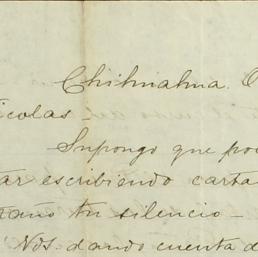 Chihuahua. O
icolas
Supongo que poc
ar escribiendo carta
traño tu silencio—
Nos dando cuenta d